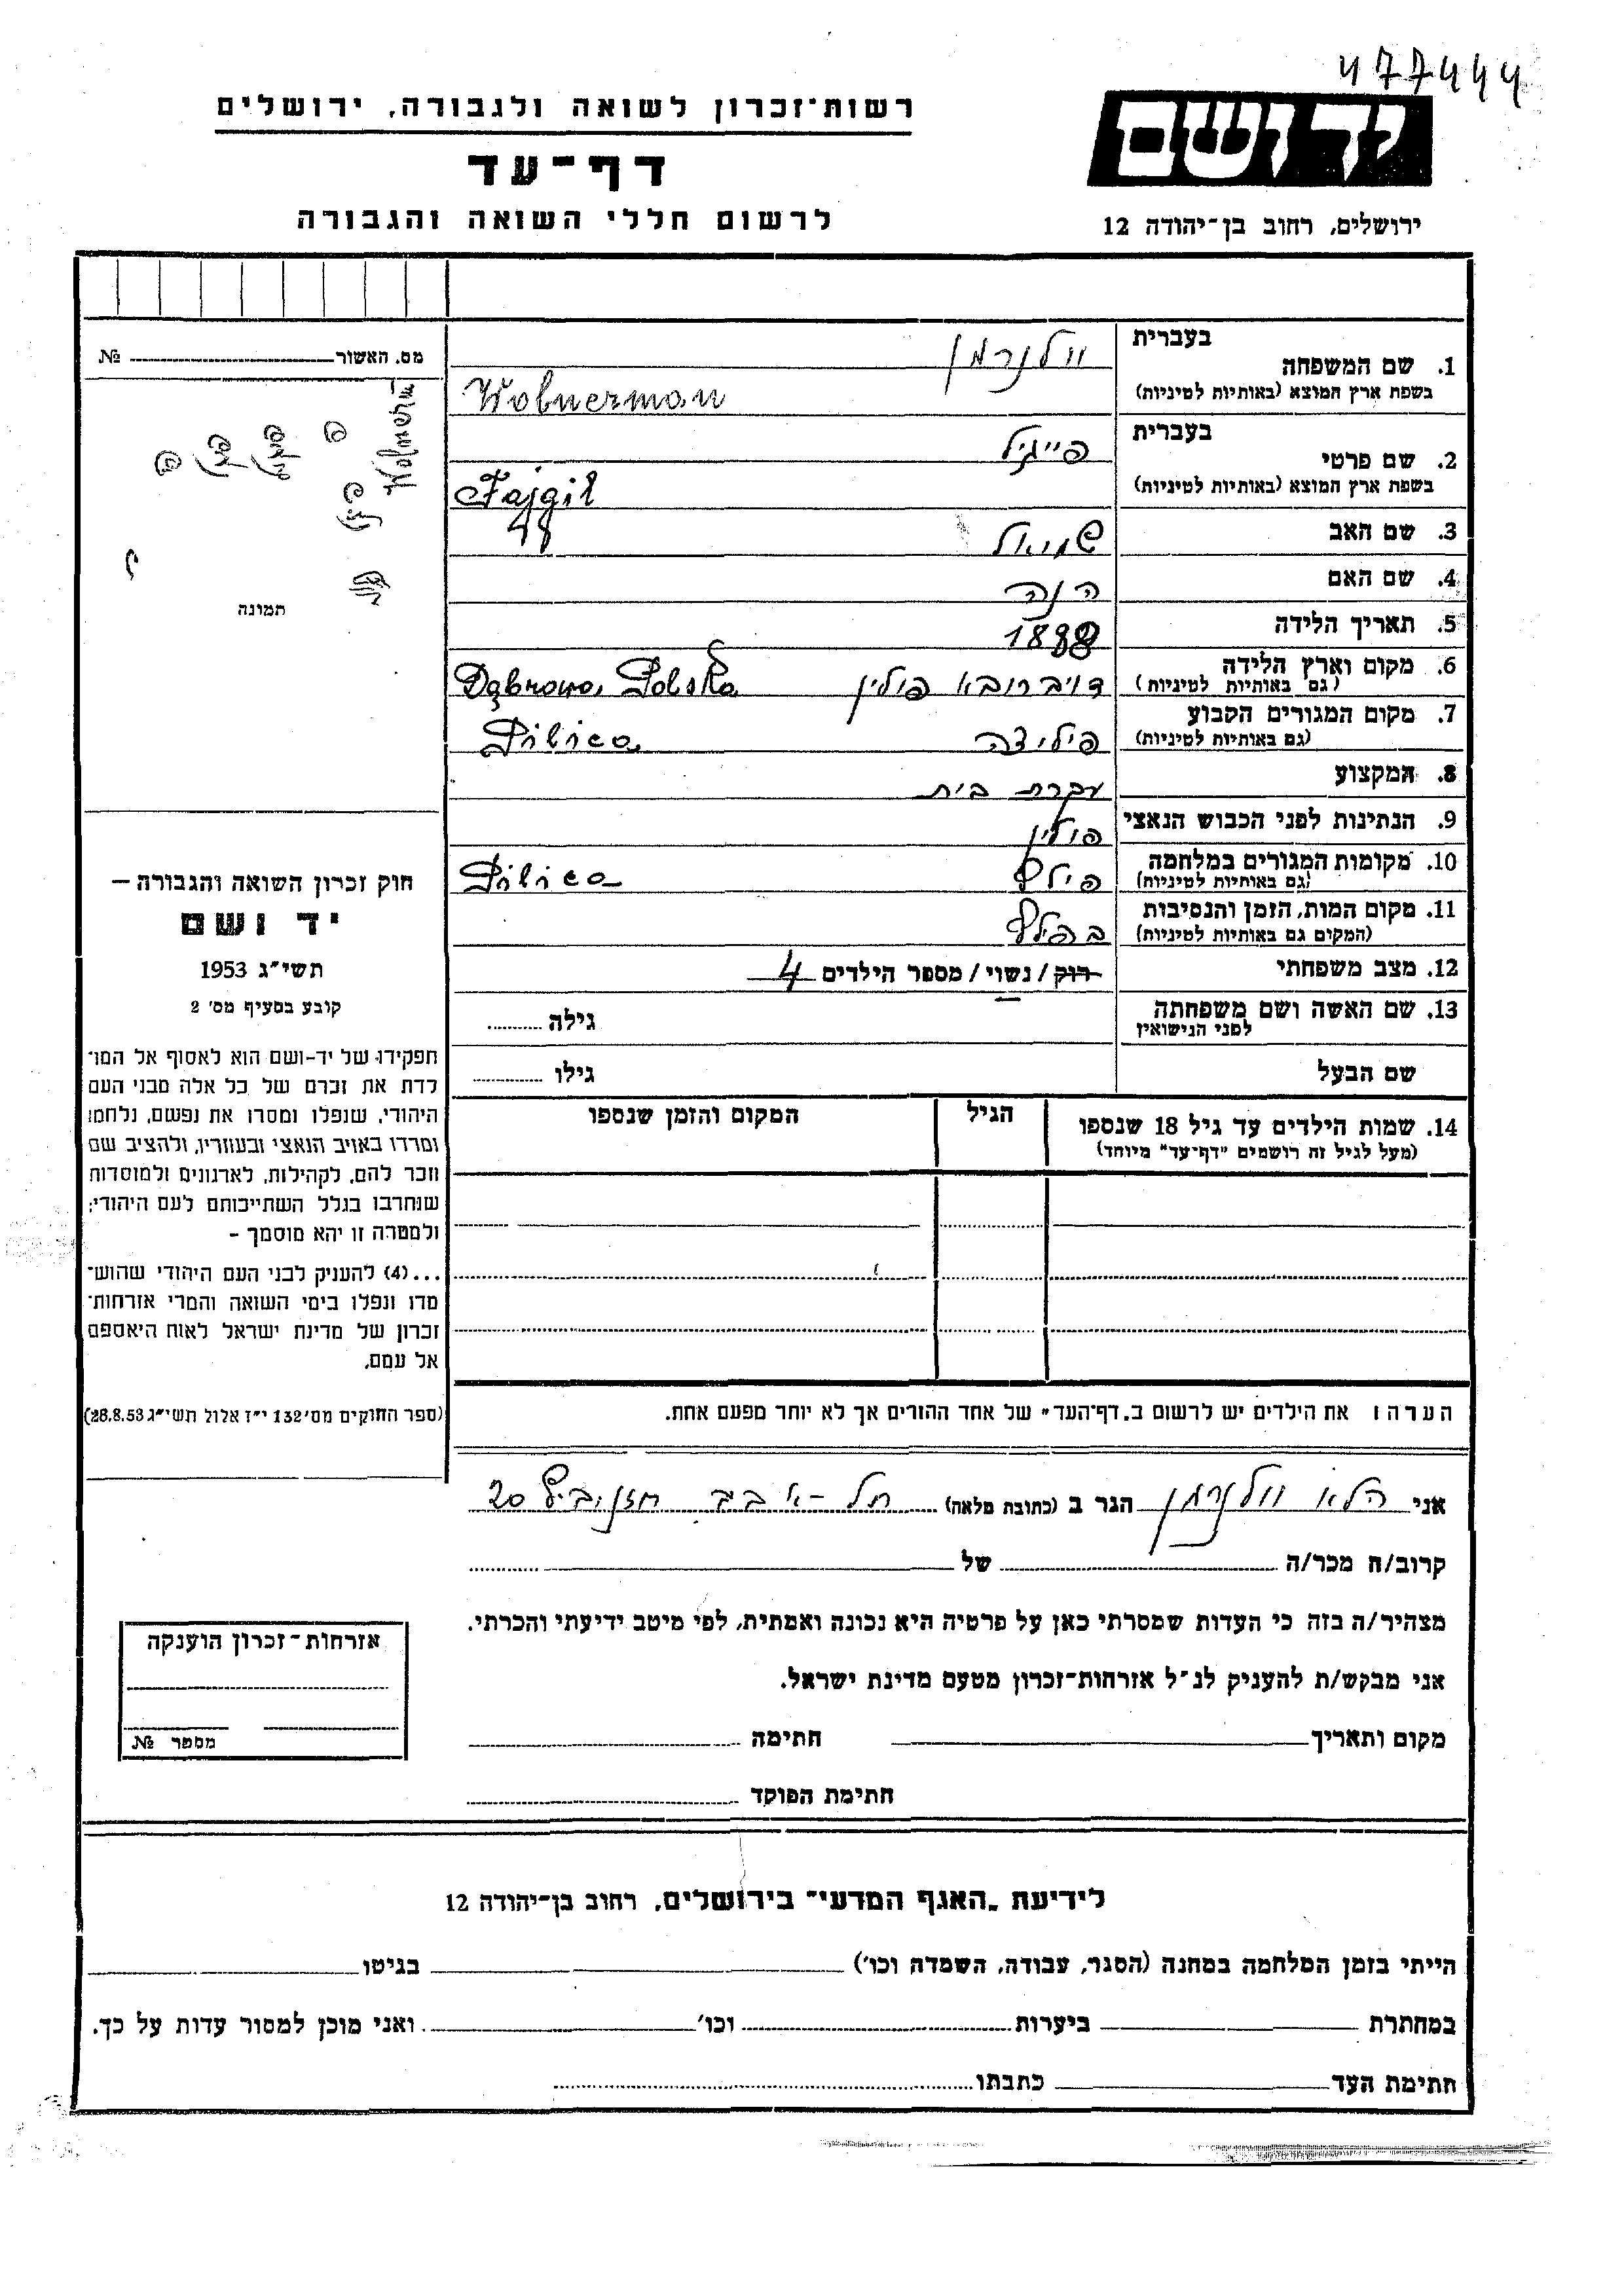 477444
יד ושם
רשות־זכרון לשואה ולגבורה, ירושלים
דף־עד
לרשום חללי השואה והגבורה
ירושלים, רחוב בן־יהודה 12
בעברית
1. שם המשפחה
בשפת ארץ המוצא (באותיות לטיניות)
וולנרמן
Wolnerman
בעברית
2. שם פרטי
בשפת ארץ המוצא (באותיות לטיניות)
פייגיל
Fajgil
48
3. שם האב שמואל
4. שם האם הנה
5. תאריך הלידה 1888
6. מקום וארץ הלידה
(גם באותיות לטיניות)
דויברובא פולין Dąbrowa, Polska
7. מקום המגורים הקבוע
(גם באותיות לטיניות)
פיליצה Pilica
8. המקצוע עקרת בית
9. הנתינות לפני הכבוש הנאצי פולין
10. מקומות המגורים במלחמה
(גם באותיות לטיניות)
Pilica
11. מקום המות, הזמן והנסיבות
(המקום גם באותיות לטיניות)
12. מצב משפחתי רוק / נשוי / מספר הילדים 4
13. שם האשה ושם משפחתה
לפני הנישואין
גילה
שם הבעל גילו
14. שמות הילדים עד גיל 18 שנספו
(מעל לגיל זה רושמים "דף־עד" מיוחד)
הגיל
המקום והזמן שנספו
הערה: את הילדים יש לרשום ב„דף־העד" של אחד ההורים אך לא יותר מפעם אחת.
מס. האשור №
Wolnerm
תמונה
חוק זכרון השואה והגבורה —
יד ושם
תשי"ג 1953
קובע בסעיף מס' 2
תפקידו של יד-ושם הוא לאסוף אל המו־
לדת את זכרם של כל אלה מבני העם
היהודי, שנפלו ומסרו את נפשם, נלחמו
ומרדו באויב הנאצי ובעוזריו, ולהציב שם
וזכר להם, לקהילות, לארגונים ולמוסדות
שנחרבו בגלל השתייכותם לעם היהודי;
ולמטרה זו יהא מוסמך –
...(4) להעניק לבני העם היהודי שהוש־
מדו ונפלו בימי השואה והמרי אזרחות־
זכרון של מדינת ישראל לאות היאספם
אל עמם.
(ספר החוקים מס' 132 י"ז אלול תשי"ג 28.8.53)
אני הלא וולנרמן הגר ב (כתובת מלאה) תל-אביב 20
קרוב/ה מכר/ה של
מצהיר/ה בזה כי העדות שמסרתי כאן על פרטיה היא נכונה ואמתית, לפי מיטב ידיעתי והכרתי.
אני מבקש/ת להעניק לנ"ל אזרחות־זכרון מטעם מדינת ישראל.
מקום ותאריך חתימה
חתימת הפוקד
אזרחות־זכרון הוענקה
מספר №
לידיעת „האגף המדעי" בירושלים, רחוב בן־יהודה 12
הייתי בזמן המלחמה במחנה (הסגר, עבודה, השמדה וכו') בגיטו
במחתרת ביערות וכו' ואני מוכן למסור עדות על כך.
חתימת העד כתבתו